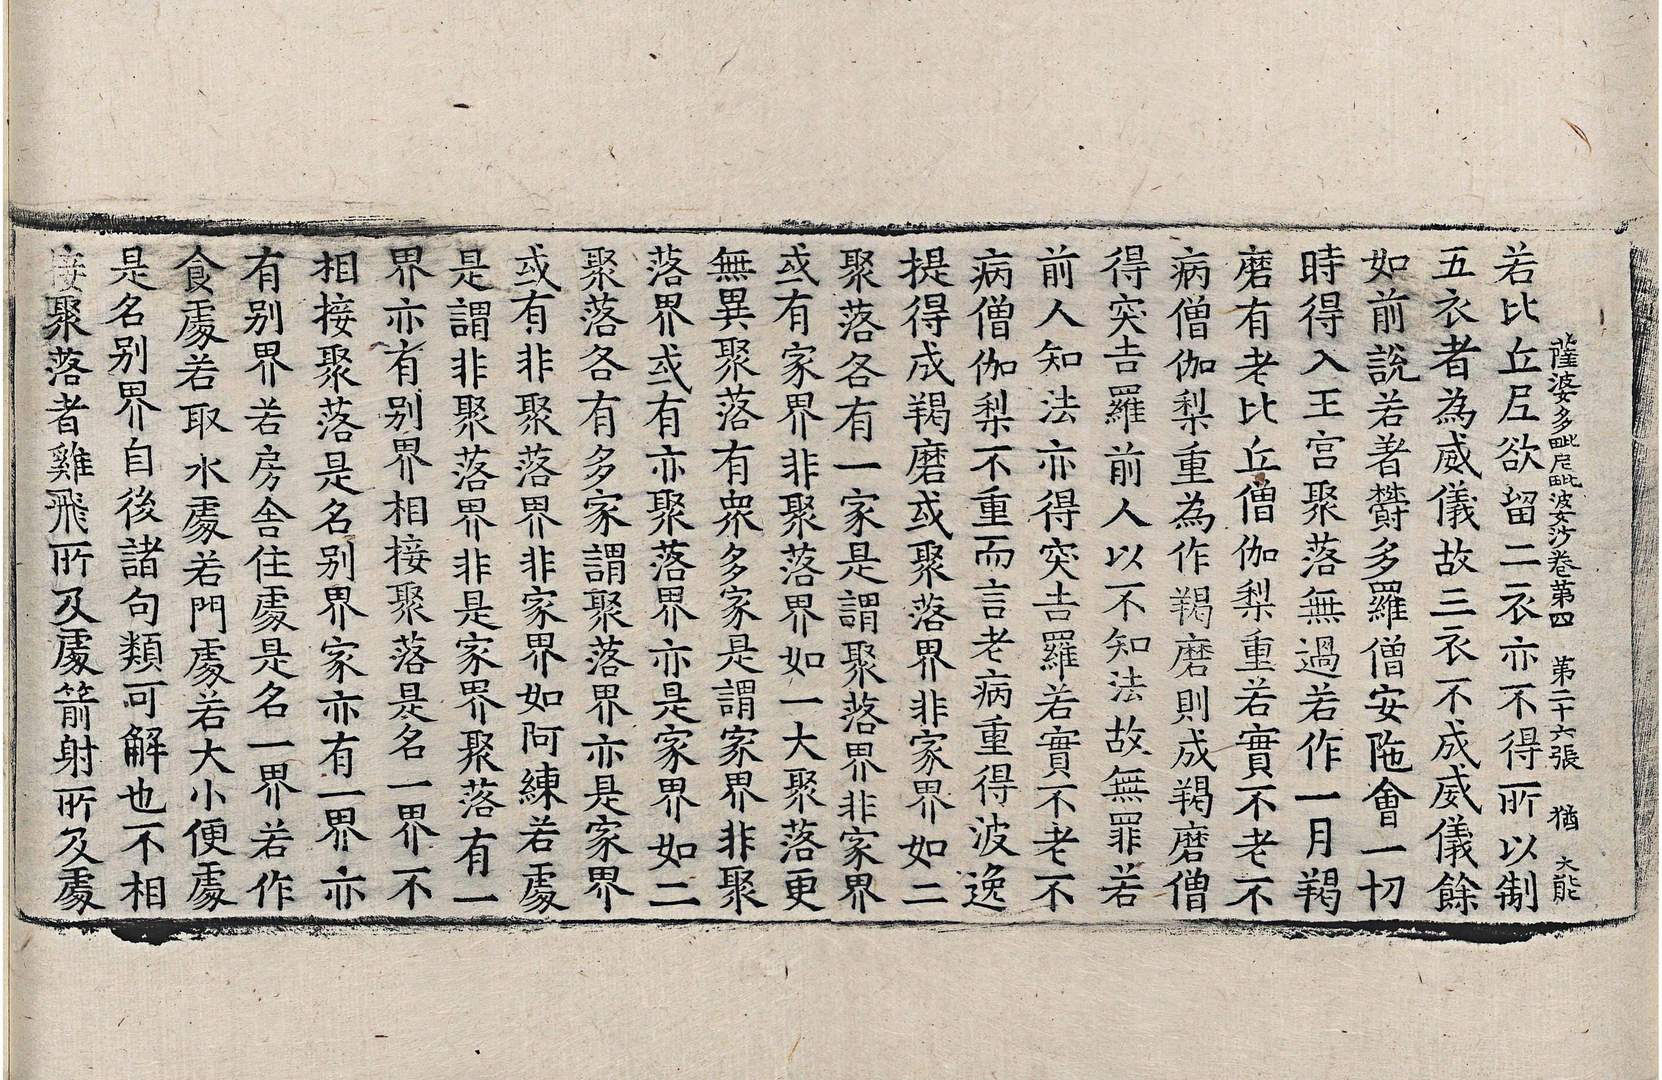 薩婆多毗尼毗婆沙卷第四 第二十六張 猶 大能
若比丘尼欲留二衣亦不得所以制
五衣者為威儀故三衣不成威儀餘
如前說若著欝多羅僧安陁會一切
時得入王宮聚落無過若作一月羯
磨有老比丘僧伽梨重若實不老不
病僧伽梨重為作羯磨則成羯磨僧
得突吉羅前人以不知法故無罪若
前人知法亦得突吉羅若實不老不
病僧伽梨不重而言老病重得波逸
提得成羯磨或聚落界非家界如二
聚落各有一家是謂聚落界非家界
或有家界非聚落界如一大聚落更
無異聚落有衆多家是謂家界非聚
落界或有亦聚落界亦是家界如二
聚落各有多家謂聚落界亦是家界
或有非聚落界非家界如阿練若處
是謂非聚落界非是家界聚落有一
界亦有别界相接聚落是名一界不
相接聚落是名别界家亦有一界亦
有别界若房舍住處是名一界若作
食處若取水處若門處若大小便處
是名别界自後諸句類可解也不相
接聚落者雞飛所及處箭射所及處